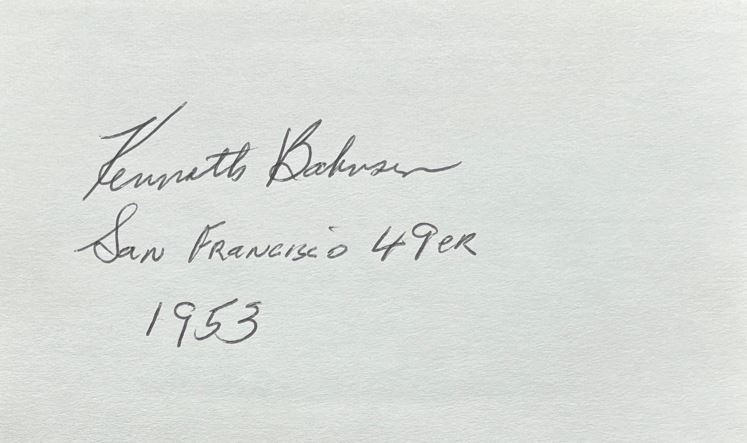 Kenneth Bahnsen
San Francisco 49er
1953